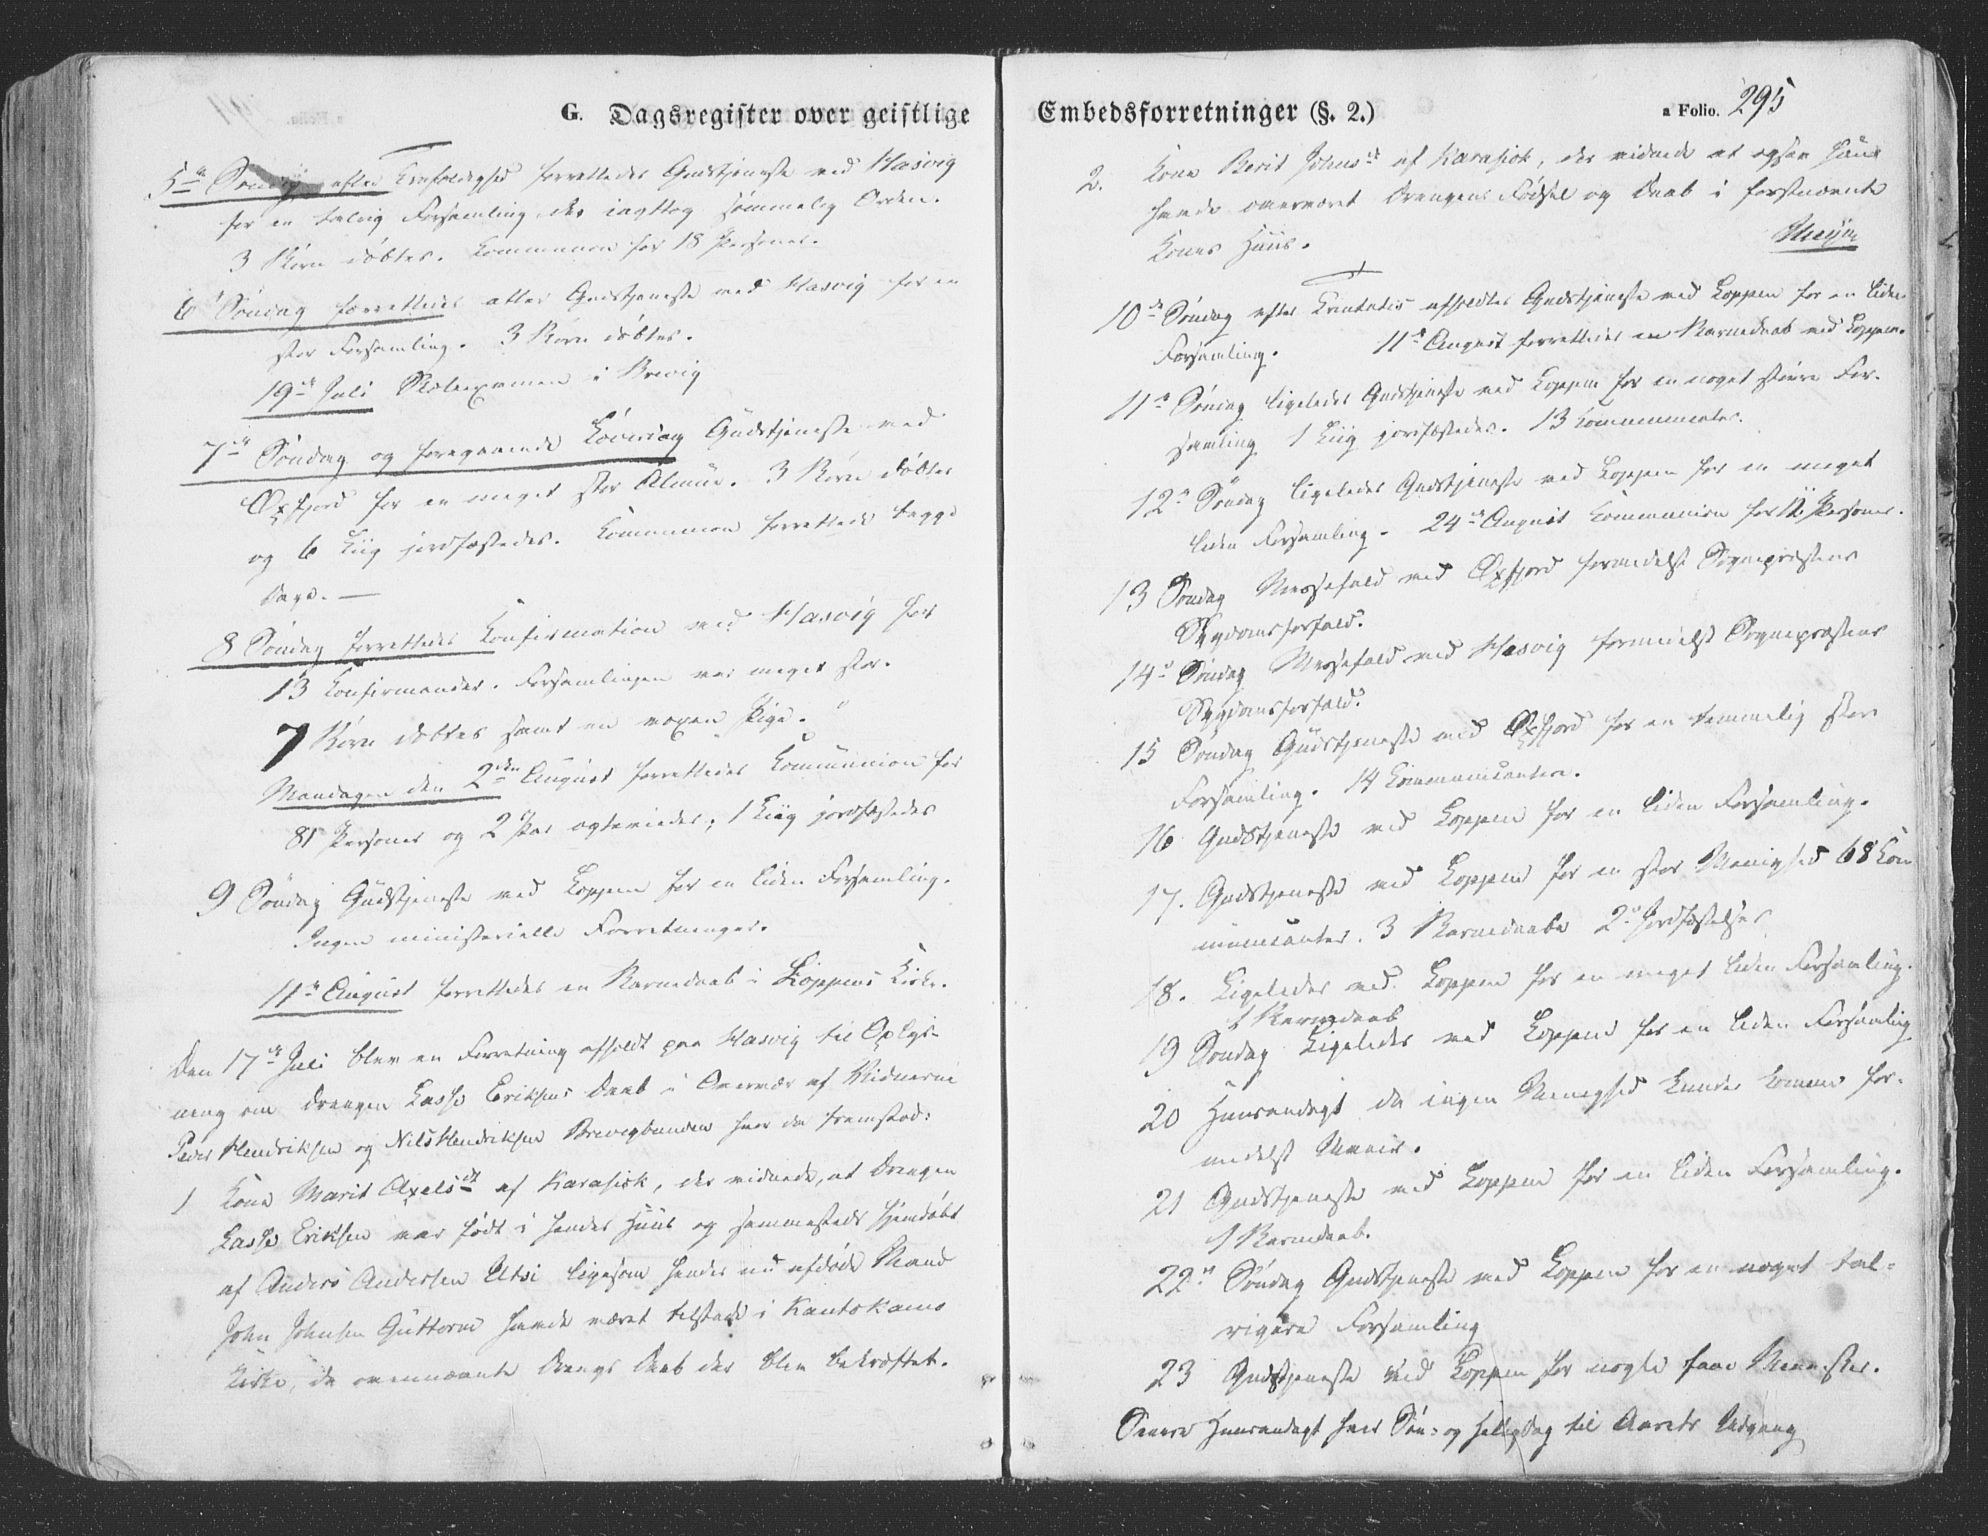 G. Dagsregister over geistlige
5te Søndag efter Trefoldighed forrettedes Gudstjeneste ved Hasvig
for en talrig Forsamling, der iagttog sømmelig Orden.
3 Børn døbtes. Communion for 18 Personer.
6 Søndag forrettedes atter Gudstjeneste ved Hasvig for en
stor Forsamling. 3 Børn døbtes.
19de Juli Skoleexamen i Brevig
7de Søndag og foregaaende Løverdag Gudstjeneste ved
Øxfjord for en meget stor Almue. 3 Børn døbtes
og 6 Liig jordfæstedes. Communion forrettede begge
Dage. —
8 Søndag forrettedes Confirmation ved Hasvig for
13 Confirmander. Forsamlingen var meget stor.
7 Børn døbtes samt en voxen Pige.
Mandagen den 2den August forrettedes Communion for
81 Personer og 2 Par ægteviedes; 1 Liig jordfæstedes
9 Søndag Gudstjeneste ved Loppen for en liden Forsamling.
Ingen ministerielle Forretninger.
11te August forrettedes en Barnedaab i Loppens Kirke.
Den 17de Juli blev en Forretning afholdt paa Hasvig til Oplys-
ning om Drengen Lasse Eriksens Daab i Overvær af Vidnerne
Peder Hendriksen og Nils Hendriksen Brevigbunden hvor da fremstod:
1 Kone Marit Axelsdt af Karasjok, der vidnede, at Drengen
Lasse Eriksen var født i hendes Huus og sammesteds hjemdøbt
af Anders Andersen Utsi ligesom hendes nu afdøde Mand
John Johnsen Guttorm havde været tilstede i Kautokeino
Kirke, da ovennævnte Drengs Daab der blev bekræftet.
Embedsforretninger (§. 2.)
a Folio. 295
2. Kone Berit Johnsdt af Karasjok, der vidnede at ogsaa hun
havde overværet Drengens Fødsel og Daab i førstnævnte
Kones Huus.
10de Søndag efter Trinitatis afholdtes Gudstjeneste ved Loppen for en liden
Forsamling. 11te August forrettedes en Barnedaab ved Loppen.
11te Søndag ligeledes Gudstjeneste ved Loppen for en noget større For-
samling 1 Liig jordfæstedes. 13 Communicanter.
12te Søndag ligeledes Gudstjeneste ved Loppen for en meget
liden Forsamling. 24de August Communion for 12 Personer.
13 Søndag Messefald ved Øxfjord formedelst Sognepræstens
Sygdomsforfald.
14de Søndag Messefald ved Hasvig formedelst Sognepræstens
Sygdomsforfald.
15 Søndag Gudstjeneste ved Øxfjord for en temmelig stor
Forsamling. 14 Communicanter.
16 Gudstjeneste ved Loppen for en liden Forsamling.
17. Gudstjeneste ved Loppen for en stor Menighed 68 Com
municanter. 3 Barnedaabe 2 Jordfæstelser
18. Ligeledes ved Loppen for en meget liden Forsamling.
1 Barnedaab
19 Søndag Ligeledes ved Loppen for en liden Forsamling
20 Huusandagt da ingen Menighed kunde komme for-
medelst Uveir.
21 Gudstjeneste ved Loppen for en liden Forsamling.
1 Barnedaab.
22de Søndag Gudstjeneste ved Loppen for en noget tal-
rigere Forsamling
23 Gudstjeneste ved Loppen for nogle faae Mennesker.
Senere Huusandagt hver Søn- og Helligdag til Aarets Udgang